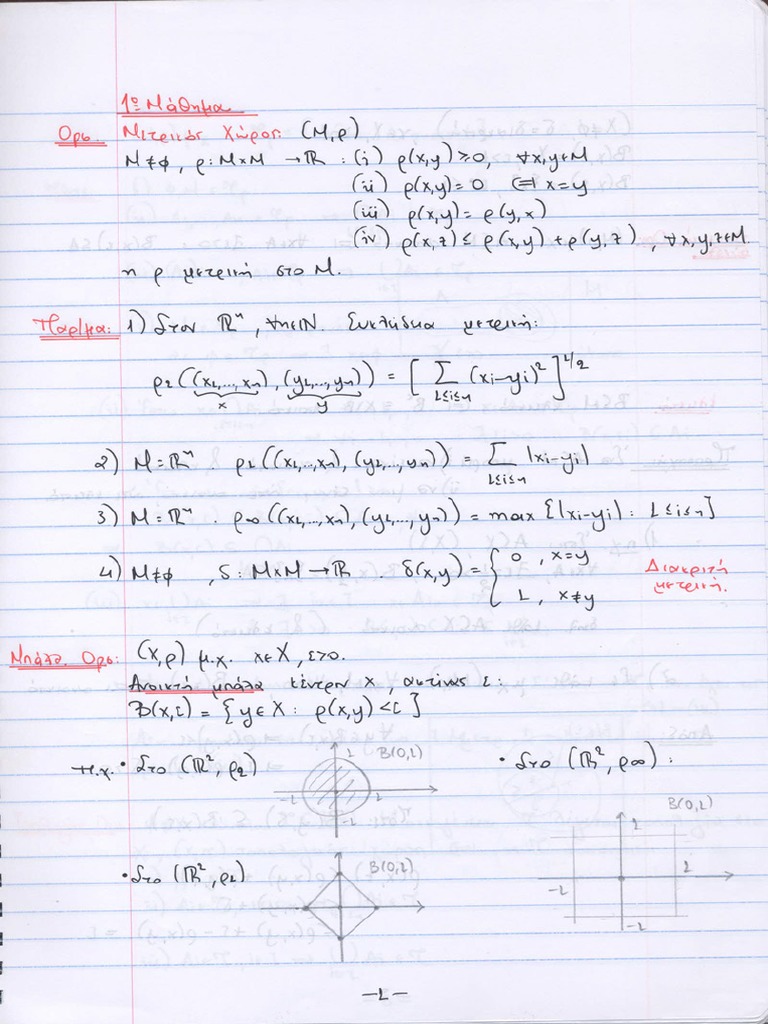 1ο Μάθημα
Ορσ. Μετρικός Χώρος: (M,ρ)
M≠∅, ρ: M×M → ℝ : (i) ρ(x,y) ≥ 0, ∀x,y∈M
(ii) ρ(x,y) = 0 ⟺ x=y
(iii) ρ(x,y) = ρ(y,x)
(iv) ρ(x,z) ≤ ρ(x,y) + ρ(y,z), ∀x,y,z∈M.
η ρ μετρική στο M.
Παρ/μα: 1) Στον ℝⁿ, ∀n∈ℕ. Ευκλείδια μετρική:
ρ₂((x₁,...,xₙ),(y₁,...,yₙ)) = [ ∑ (xi-yi)² ]^1/2
x y 1≤i≤n
2) M=ℝⁿ ρ₁((x₁,...,xₙ),(y₁,...,yₙ)) = ∑ |xi-yi|
1≤i≤n
3) M=ℝⁿ. ρ∞((x₁,...,xₙ),(y₁,...,yₙ)) = max{|xi-yi| : 1≤i≤n}
4) M≠∅, δ: M×M → ℝ. δ(x,y) = { 0, x=y Διακριτή
1, x≠y μετρική.
Μπάλα. Ορσ: (X,ρ) μ.χ. x∈X, ε>0.
Ανοικτή μπάλα κέντρου x, ακτίνας ε:
B(x,ε) = {y∈X: ρ(x,y)<ε}
π.χ. • Στο (ℝ², ρ₂) 1 B(0,1) -1 1 -1 • Στο (ℝ², ρ∞):
B(0,1) 1 1 -1 -1
• Στο (ℝ², ρ₁) B(0,1)
-1-